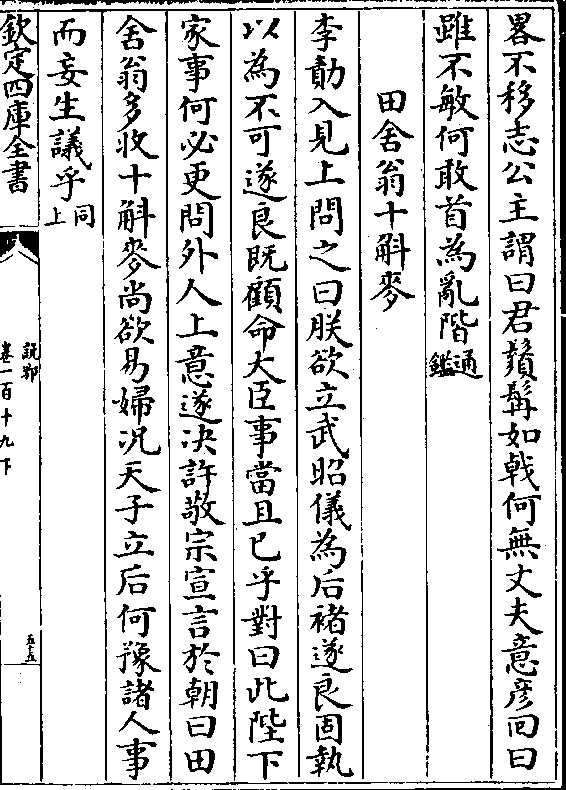 畧不移志公主謂曰君鬚髯如戟何無丈夫意彦回曰
雖不敏何敢首為亂階通鑑
田舍翁十斛麥
李勣入見上問之曰朕欲立武昭儀為后褚遂良固執
以為不可遂良既顧命大臣事當且已乎對曰此陛下
家事何必更問外人上意遂决許敬宗宣言於朝曰田
舍翁多收十斛麥尚欲易婦况天子立后何豫諸人事
而妄生議乎同上
欽定四庫全書
說郛
卷一百十九下
五十五